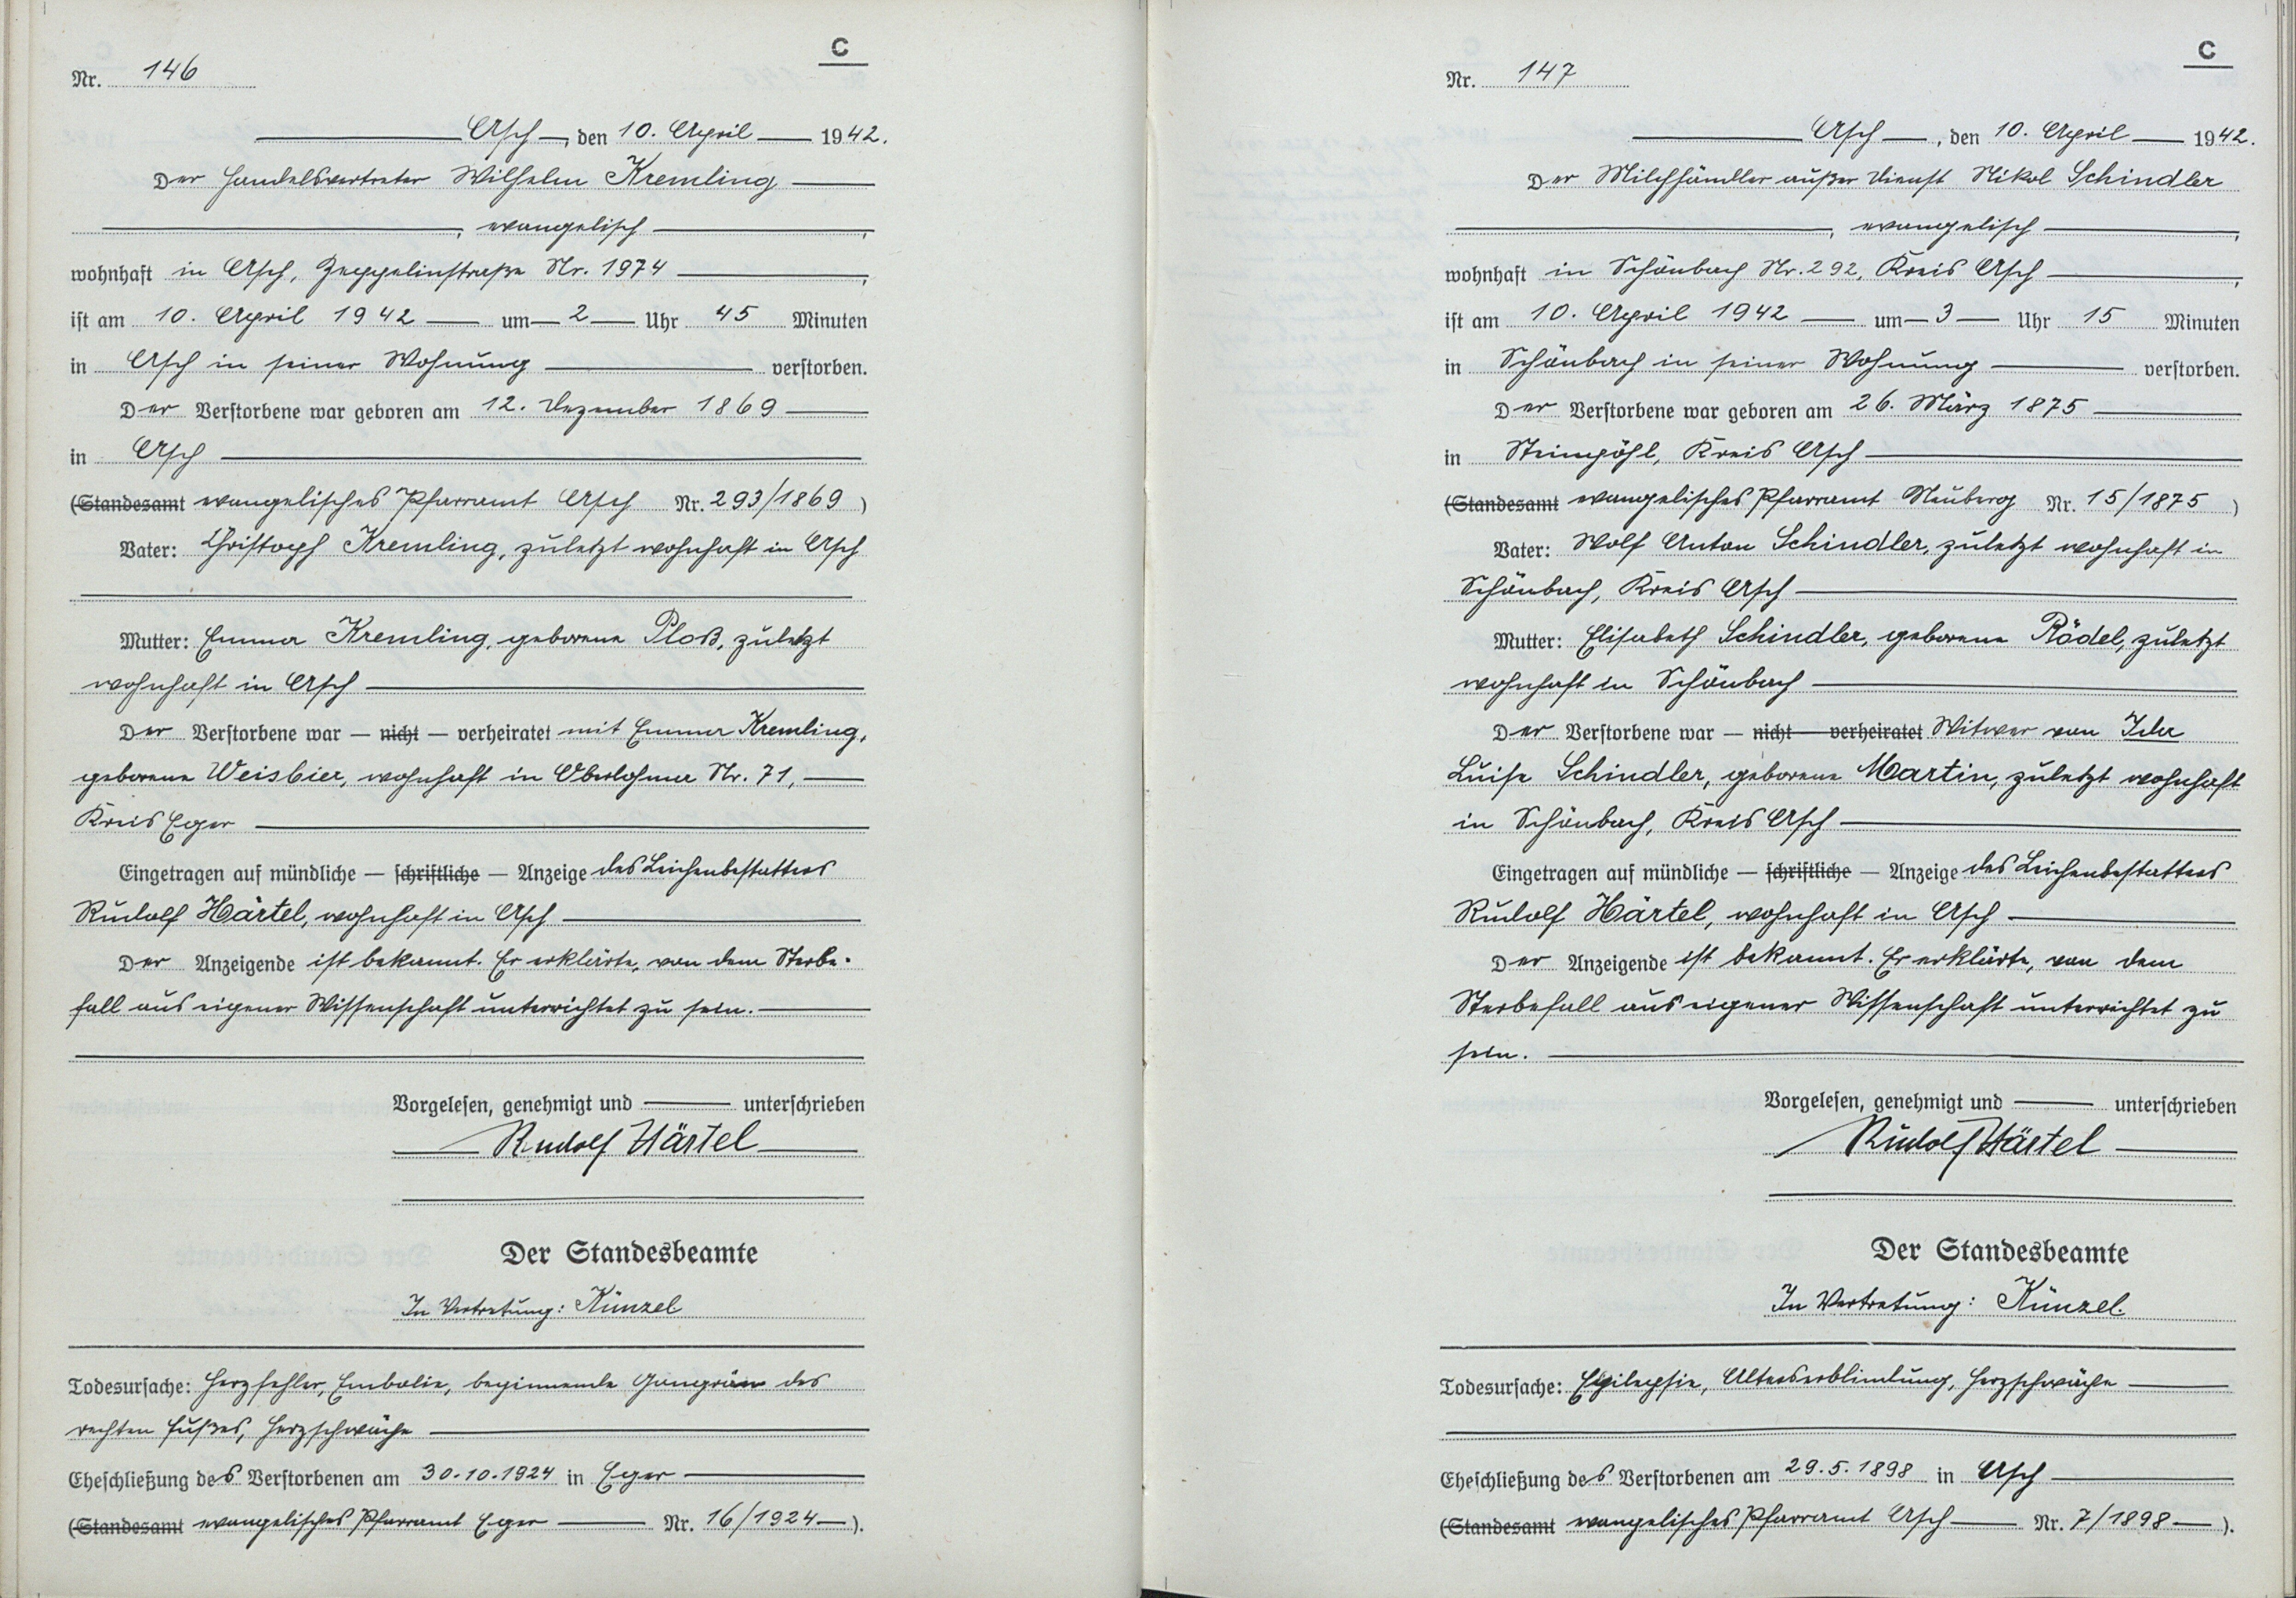 C
Nr. 146
Asch, den 10. April 1942.
Der Handelsvertreter Wilhelm Kremling
, evangelisch,
wohnhaft in Asch, Zeppelinstraße Nr. 1974,
ist am 10. April 1942 um 2 Uhr 45 Minuten
in Asch in seiner Wohnung verstorben.
Der Verstorbene war geboren am 12. Dezember 1869
in Asch
(Standesamt evangelisches Pfarramt Asch Nr. 293/1869)
Vater: Christoph Kremling, zuletzt wohnhaft in Asch
Mutter: Emma Kremling, geborene Ploß, zuletzt
wohnhaft in Asch
Der Verstorbene war — nicht — verheiratet mit Emma Kremling,
geborene Weisbier, wohnhaft in Oberlohma Nr. 71,
Kreis Eger
Eingetragen auf mündliche — schriftliche — Anzeige des Leichenbestatters
Rudolf Härtel, wohnhaft in Asch
Der Anzeigende ist bekannt. Er erklärte, von dem Sterbe-
fall aus eigener Wissenschaft unterrichtet zu sein.
Vorgelesen, genehmigt und unterschrieben
Rudolf Härtel
Der Standesbeamte
In Vertretung: Künzel
Todesursache: Herzfehler, Embolie, beginnende Gangrän des
rechten Fußes, Herzschwäche
Eheschließung des Verstorbenen am 30.10.1924 in Eger
(Standesamt evangelisches Pfarramt Eger Nr. 16/1924).
C
Nr. 147
Asch, den 10. April 1942.
Der Milchhändler außer Dienst Nikol Schindler
, evangelisch,
wohnhaft in Schönbach Nr. 292, Kreis Asch,
ist am 10. April 1942 um 3 Uhr 15 Minuten
in Schönbach in seiner Wohnung verstorben.
Der Verstorbene war geboren am 26. März 1875
in Steinpöhl, Kreis Asch
(Standesamt evangelisches Pfarramt Neuberg Nr. 15/1875)
Vater: Wolf Anton Schindler, zuletzt wohnhaft in
Schönbach, Kreis Asch
Mutter: Elisabeth Schindler, geborene Rödel, zuletzt
wohnhaft in Schönbach
Der Verstorbene war — nicht — verheiratet Witwer von Ida
Luise Schindler, geborene Martin, zuletzt wohnhaft
in Schönbach, Kreis Asch
Eingetragen auf mündliche — schriftliche — Anzeige des Leichenbestatters
Rudolf Härtel, wohnhaft in Asch
Der Anzeigende ist bekannt. Er erklärte, von dem
Sterbefall aus eigener Wissenschaft unterrichtet zu
sein.
Vorgelesen, genehmigt und unterschrieben
Rudolf Härtel
Der Standesbeamte
In Vertretung: Künzel.
Todesursache: Epilepsie, Alterserblindung, Herzschwäche
Eheschließung des Verstorbenen am 29.5.1898 in Asch
(Standesamt evangelisches Pfarramt Asch Nr. 7/1898).